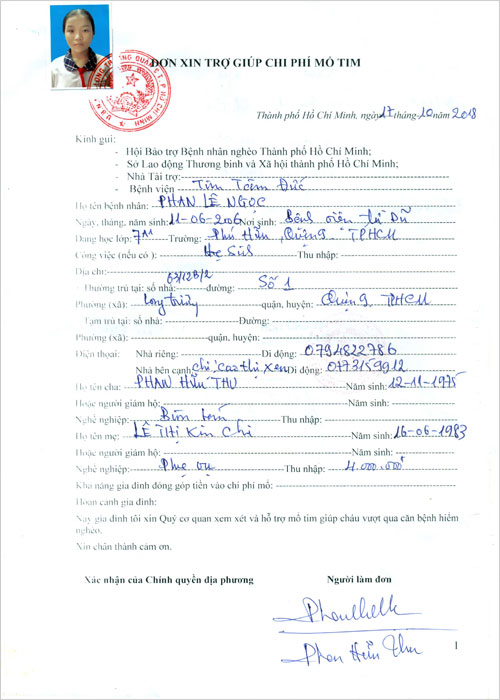 ĐƠN XIN TRỢ GIÚP CHI PHÍ MỔ TIM
Thành phố Hồ Chí Minh, ngày 17 tháng 10 năm 2018
Kính gửi:
- Hội Bảo trợ Bệnh nhân nghèo Thành phố Hồ Chí Minh;
- Sở Lao động Thương binh và Xã hội thành phố Hồ Chí Minh;
- Nhà Tài trợ:
- Bệnh viện Tim Tâm Đức
Họ tên bệnh nhân: PHAN LÊ NGỌC
Ngày, tháng, năm sinh: 11-06-2006 Nơi sinh: Bệnh viện Từ Dũ
Đang học lớp: 7 Trường: Phú Hữu, Quận 9 TPHCM
Công việc (nếu có): Học Sinh Thu nhập:
Địa chỉ:
Thường trú tại: số nhà: 63/12B/2 đường: Số 1
Phường (xã): Long Trường quận, huyện: Quận 9 TPHCM
Tạm trú tại: số nhà: Đường:
Phường (xã): quận, huyện:
Điện thoại: Nhà riêng: Di động: 0794822786
Nhà bên cạnh chị: Cao Thị Xen Di động:
Họ tên cha: PHAN HỮU THU Năm sinh: 12-11-1975
Hoặc người giám hộ: Năm sinh:
Nghề nghiệp: Thu nhập:
Họ tên mẹ: LÊ THỊ KIM Chi Năm sinh: 16-06-1983
Hoặc người giám hộ: Năm sinh:
Nghề nghiệp: Phục vụ Thu nhập: 4.000.000đ
Khả năng gia đình đóng góp tiền vào chi phí mổ:
Hoàn cảnh gia đình:
Nay gia đình tôi xin Quý cơ quan xem xét và hỗ trợ mổ tim giúp cháu vượt qua căn bệnh hiểm
nghèo.
Xin chân thành cảm ơn.
Xác nhận của Chính quyền địa phương Người làm đơn
Phan Hữu Thu
1